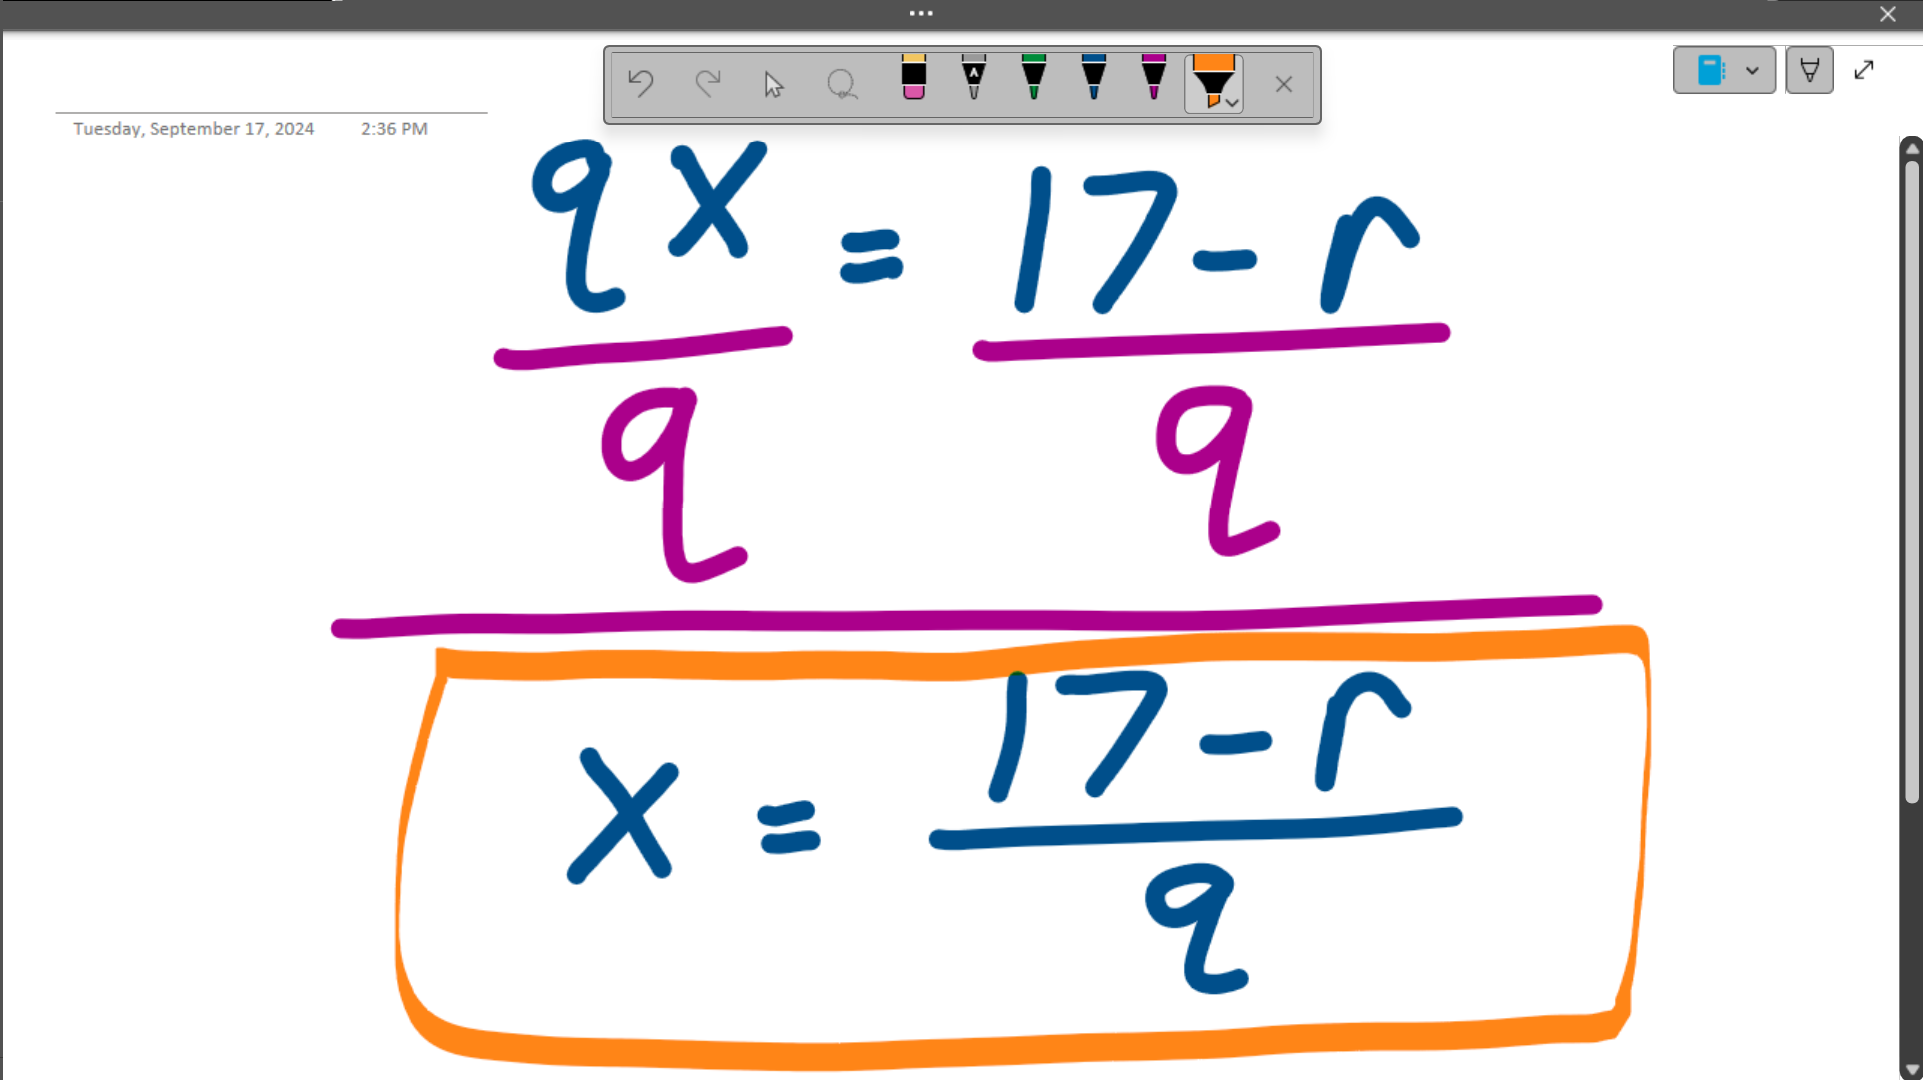 Tuesday, September 17, 2024 2:36 PM
qx = 17 - r
q q
17 - r
x =
q